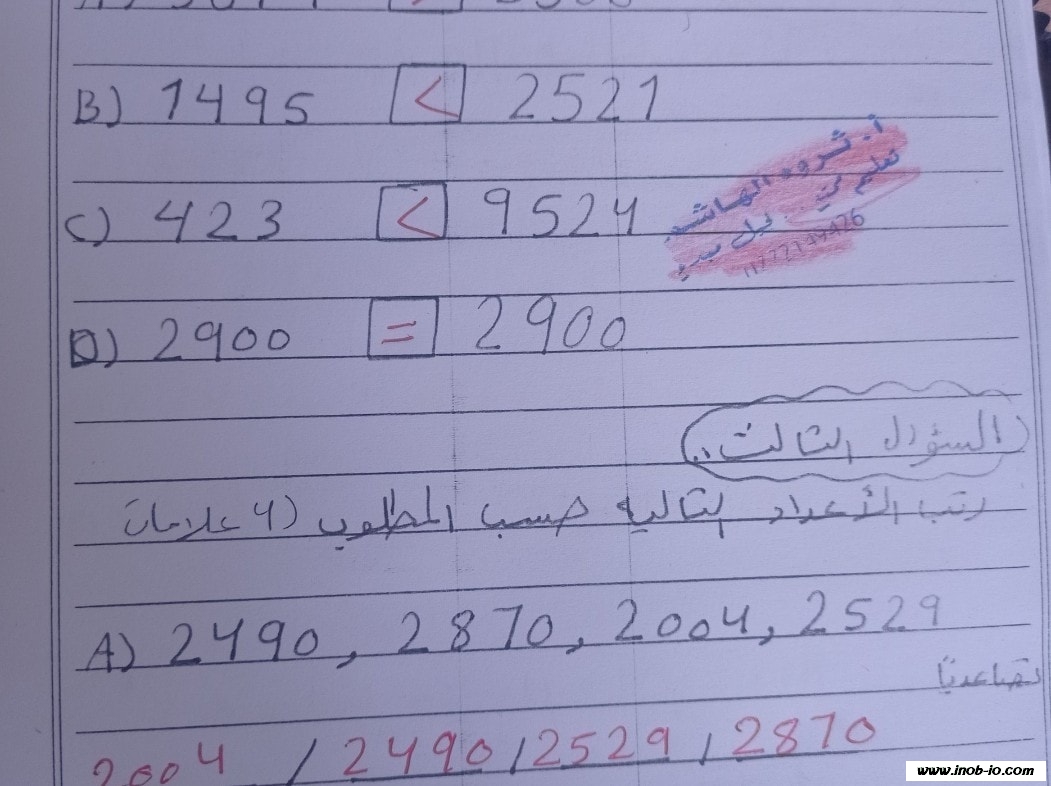 B) 1495 < 2521
C) 423 < 9524
D) 2900 = 2900
أ. ثروه الهاشم
تعليم
السؤال الثالث..
رتب الأعداد التاليه حسب المطلوب (4 علامات
A) 2490, 2870, 2004, 2529
تصاعديًا
2004 / 2490 / 2529 / 2870
www.inob-io.com